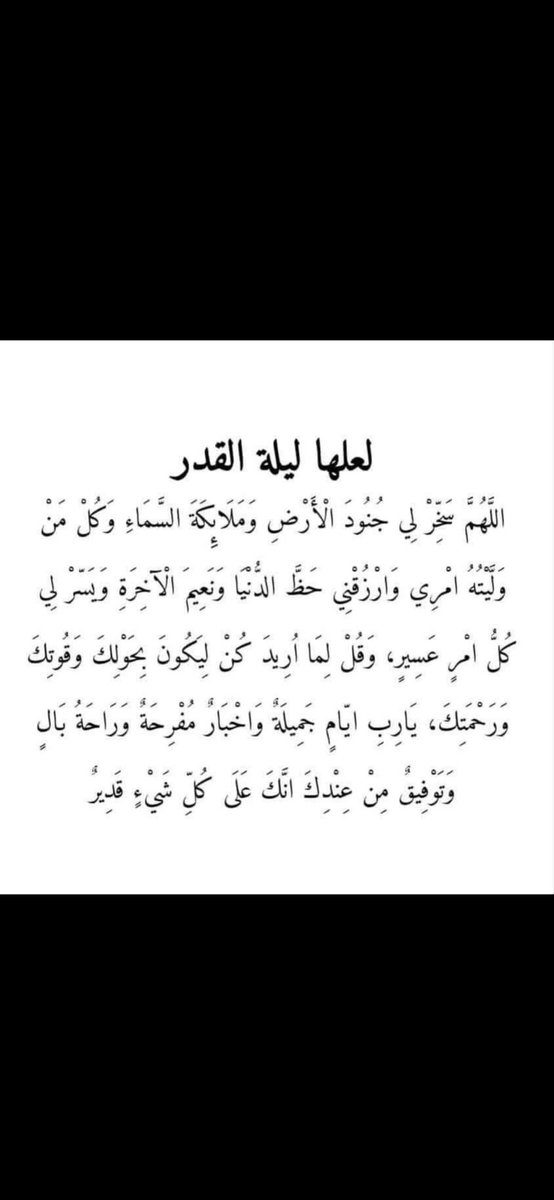 لعلها ليلة القدر
اللَّهُمَّ سَخِّرْ لِي جُنُودَ الْأَرْضِ وَمَلَائِكَةَ السَّمَاءِ وَكُلْ مَنْ
وَلَّيْتُهُ امْرِي وَارْزُقْنِي حَظَّ الدُّنْيَا وَنَعِيمَ الْآخِرَةِ وَيَسّرْ لِي
كُلُّ امْرٍ عَسِيرٍ، وَقُلْ لِمَا اُرِيدَ كُنْ لِيَكُونَ بِحَوْلِكَ وَقُوتِكَ
وَرَحْمَتِكَ، يَارِبِ ايّامٍ جَمِيلَةٌ وَاخْبَارٌ مُفْرِحَةٌ وَرَاحَةُ بَالٍ
وَتَوْفِيقٌ مِنْ عِنْدِكَ انَّكَ عَلَى كُلِّ شَيْءٍ قَدِيرٌ